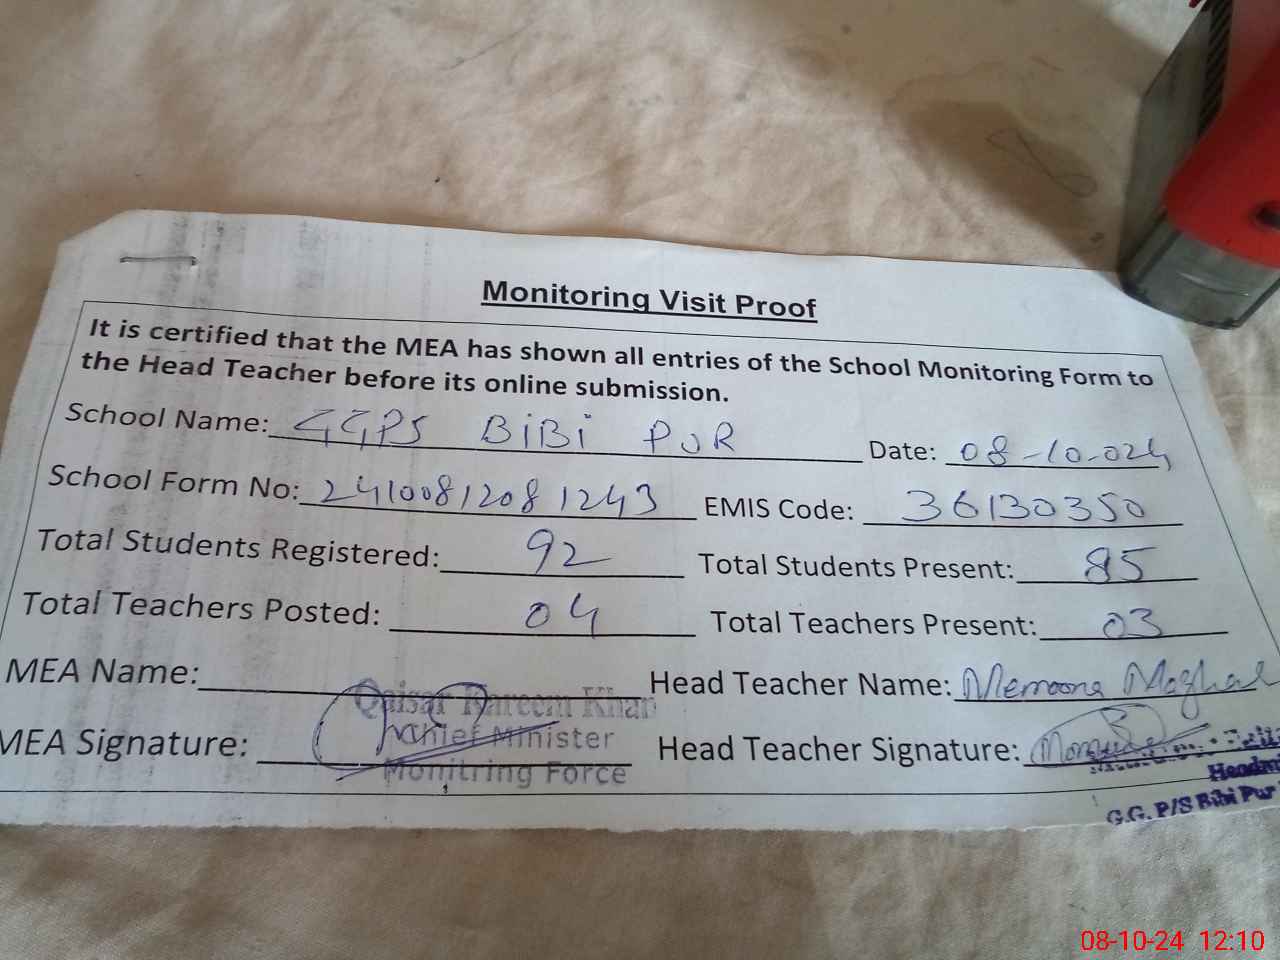 Monitoring Visit Proof
It is certified that the MEA has shown all entries of the School Monitoring Form to
the Head Teacher before its online submission.
School Name: GGPS BiBi PUR Date: 08-10-024
School Form No: 24100812081243 EMIS Code: 36130350
Total Students Registered: 92 Total Students Present: 85
Total Teachers Posted: 04 Total Teachers Present: 03
MEA Name: Head Teacher Name:
Qaisar Kareem Khan
Chief Minister
Monitring Force
MEA Signature: Head Teacher Signature:
G.G. P/S Bibi Pur
08-10-24 12:10